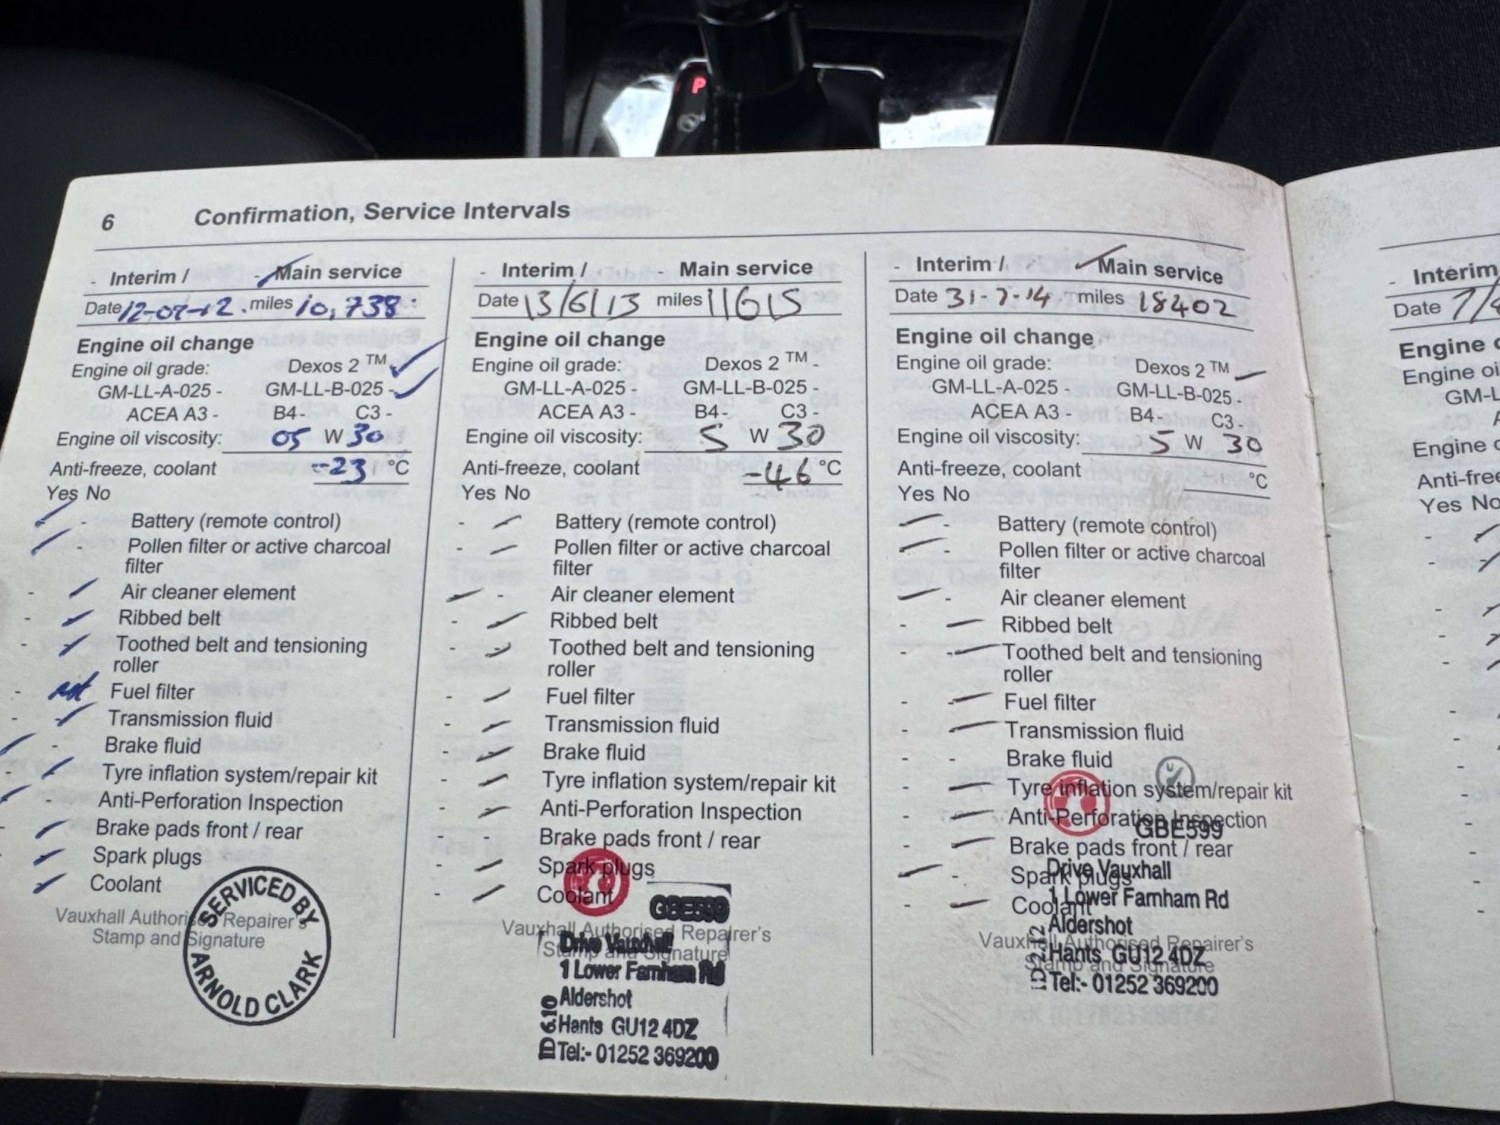 P
6 Confirmation, Service Intervals
- Interim / - Main service
Date 12-07-12. miles 10,738
Engine oil change
Engine oil grade: Dexos 2 TM
GM-LL-A-025 - GM-LL-B-025 -
ACEA A3 - B4- C3 -
Engine oil viscosity: 05 W 30
Anti-freeze, coolant -23 °C
Yes No
- Battery (remote control)
- Pollen filter or active charcoal
filter
- Air cleaner element
- Ribbed belt
- Toothed belt and tensioning
roller
- Fuel filter
- Transmission fluid
- Brake fluid
- Tyre inflation system/repair kit
- Anti-Perforation Inspection
- Brake pads front / rear
Spark plugs
Coolant
Vauxhall Authorised Repairer's
Stamp and Signature
SERVICED BY
ARNOLD CLARK
- Interim / - Main service
Date 13/6/13 miles 11615
Engine oil change
Engine oil grade: Dexos 2 TM -
GM-LL-A-025 - GM-LL-B-025 -
ACEA A3 - B4- C3 -
Engine oil viscosity: 5 W 30
Anti-freeze, coolant -46 °C
Yes No
- Battery (remote control)
- Pollen filter or active charcoal
filter
- Air cleaner element
- Ribbed belt
- Toothed belt and tensioning
roller
- Fuel filter
- Transmission fluid
- Brake fluid
- Tyre inflation system/repair kit
- Anti-Perforation Inspection
- - Brake pads front / rear
- Spark plugs
- Coolant
Vauxhall Authorised Repairer's
Stamp and Signature
GBE599
Drive Vauxhall
1 Lower Farnham Rd
Aldershot
Hants GU12 4DZ
Tel:- 01252 369200
- Interim / Main service
Date 31-7-14 miles 18402
Engine oil change
Engine oil grade: Dexos 2 TM
GM-LL-A-025 - GM-LL-B-025 -
ACEA A3 - B4- C3 -
Engine oil viscosity: 5 W 30
Anti-freeze, coolant °C
Yes No
- Battery (remote control)
- Pollen filter or active charcoal
filter
- Air cleaner element
- Ribbed belt
- Toothed belt and tensioning
roller
- Fuel filter
- Transmission fluid
- - Brake fluid
- Tyre inflation system/repair kit
- Anti-Perforation Inspection
- Brake pads front / rear
- Spark plugs
- Coolant
Vauxhall Authorised Repairer's
Stamp and Signature
GBE599
Drive Vauxhall
1 Lower Farnham Rd
Aldershot
Hants GU12 4DZ
Tel:- 01252 369200
- Interim
Date
Engine
Engine
Engine
Yes No